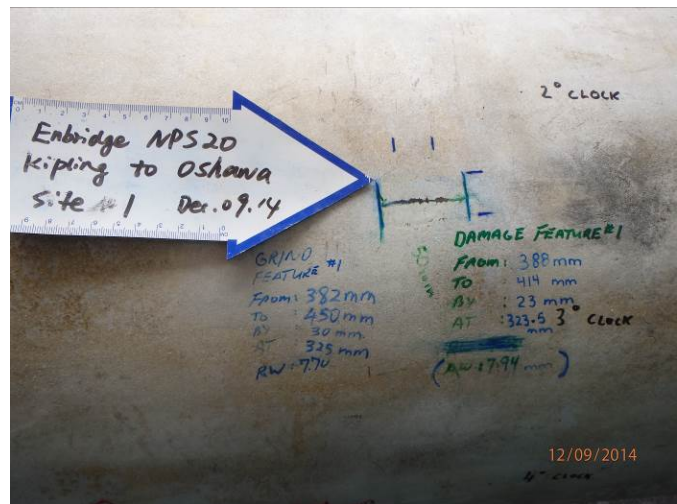 Enbridge NPS20
Kipling to Oshawa
Site #1 Dec. 09.'14
2° CLOCK
GRIND
FEATURE #1
FROM: 382mm
TO : 450mm
BY 30 mm.
AT : 325 mm
RW: 7.70
DAMAGE FEATURE #1
FROM: 388 mm
TO : 414 mm
BY : 23 mm
AT : 323.5 mm
3° CLOCK
(RW: 7.94 mm)
12/09/2014
4° CLOCK